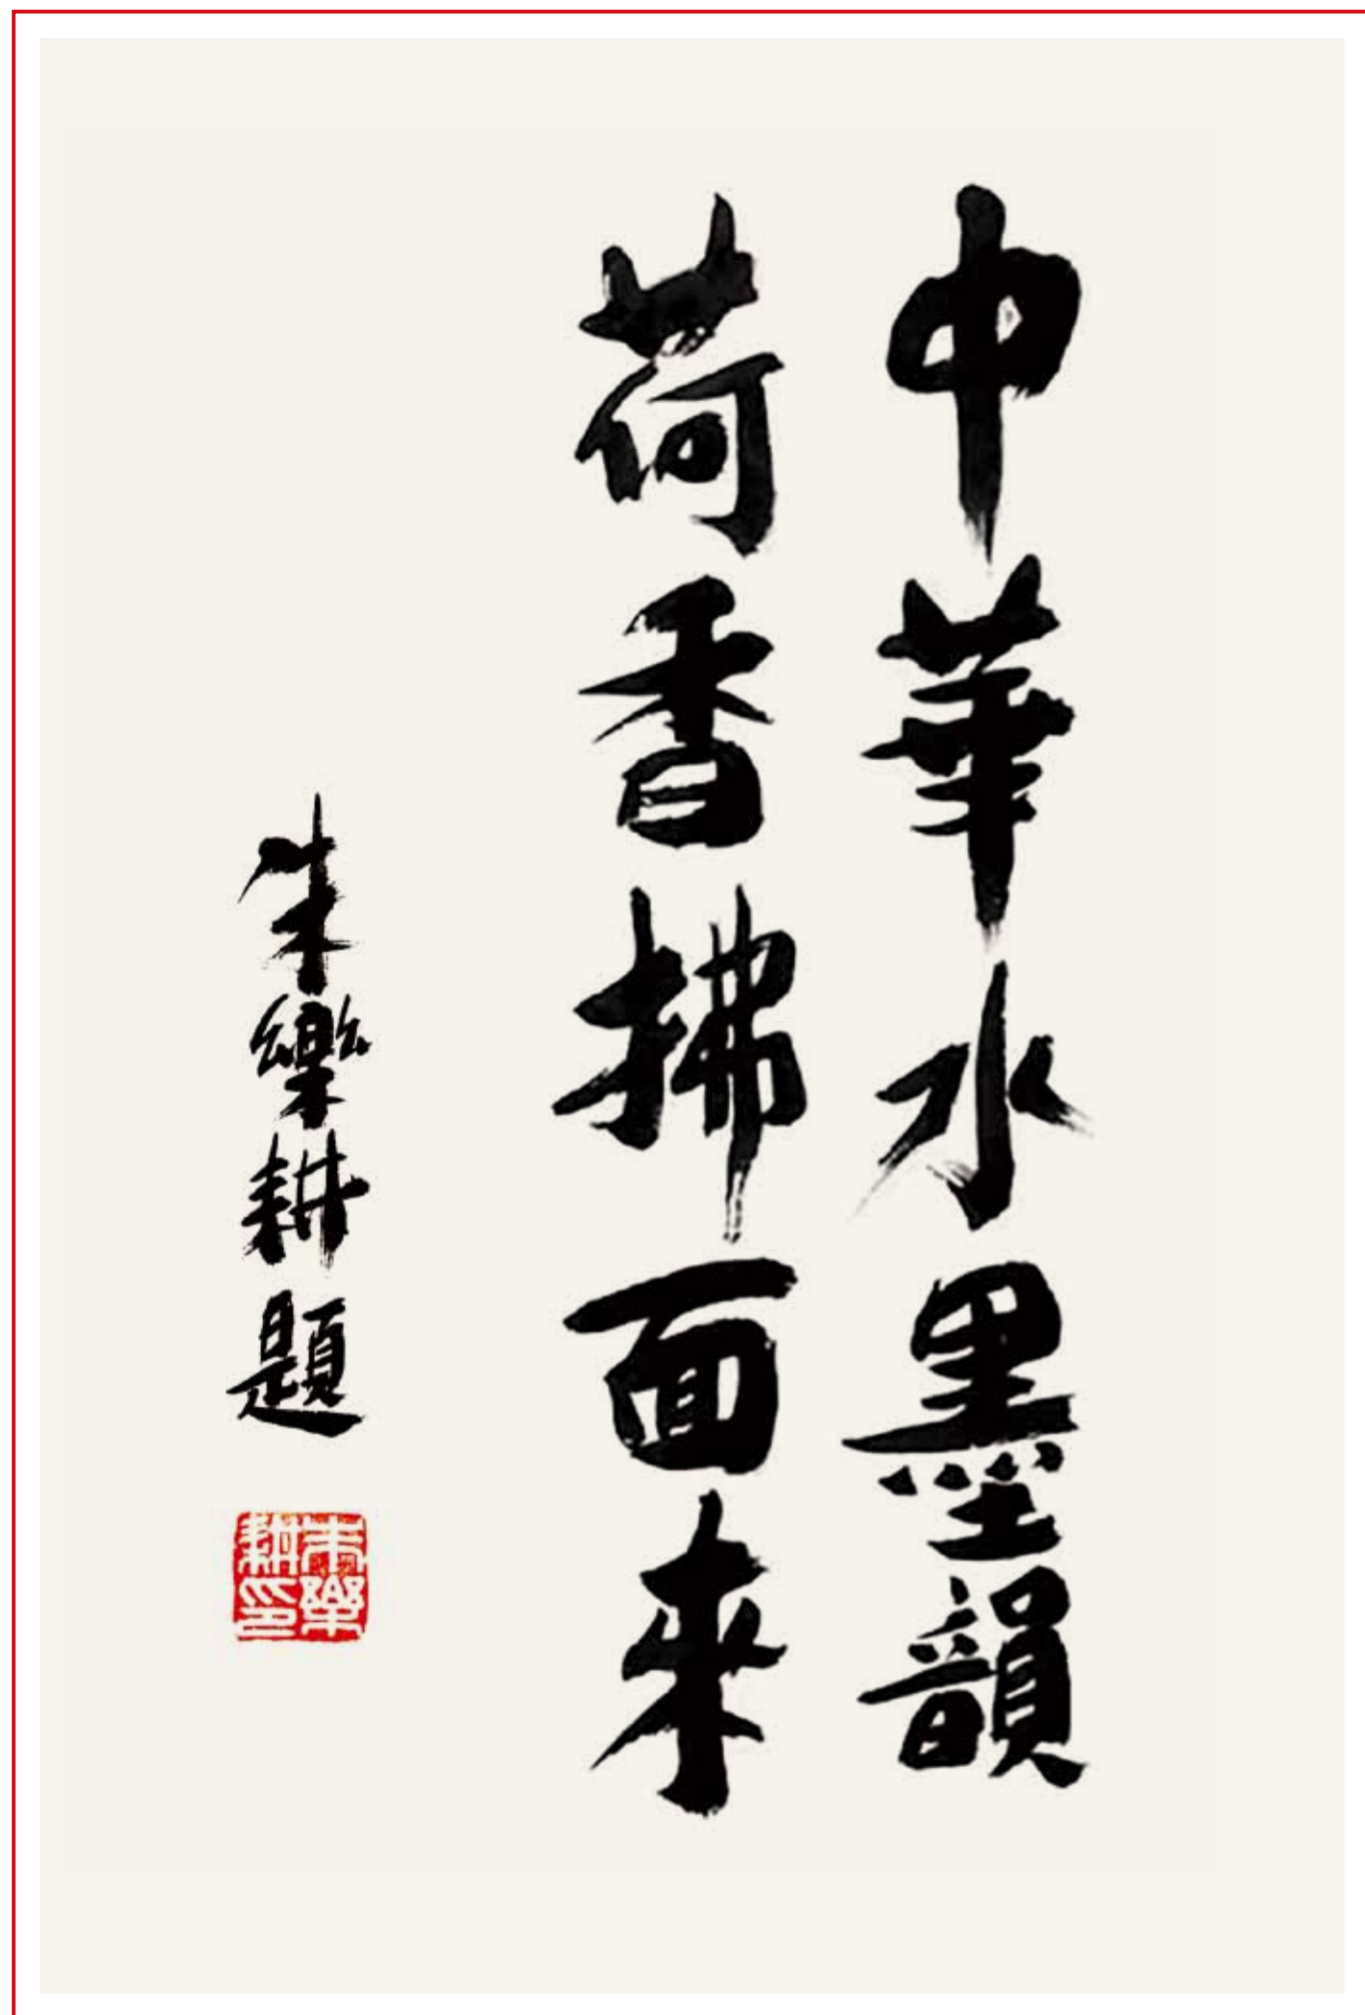 中華水墨韻
荷香拂面來
朱樂耕題
朱樂耕印